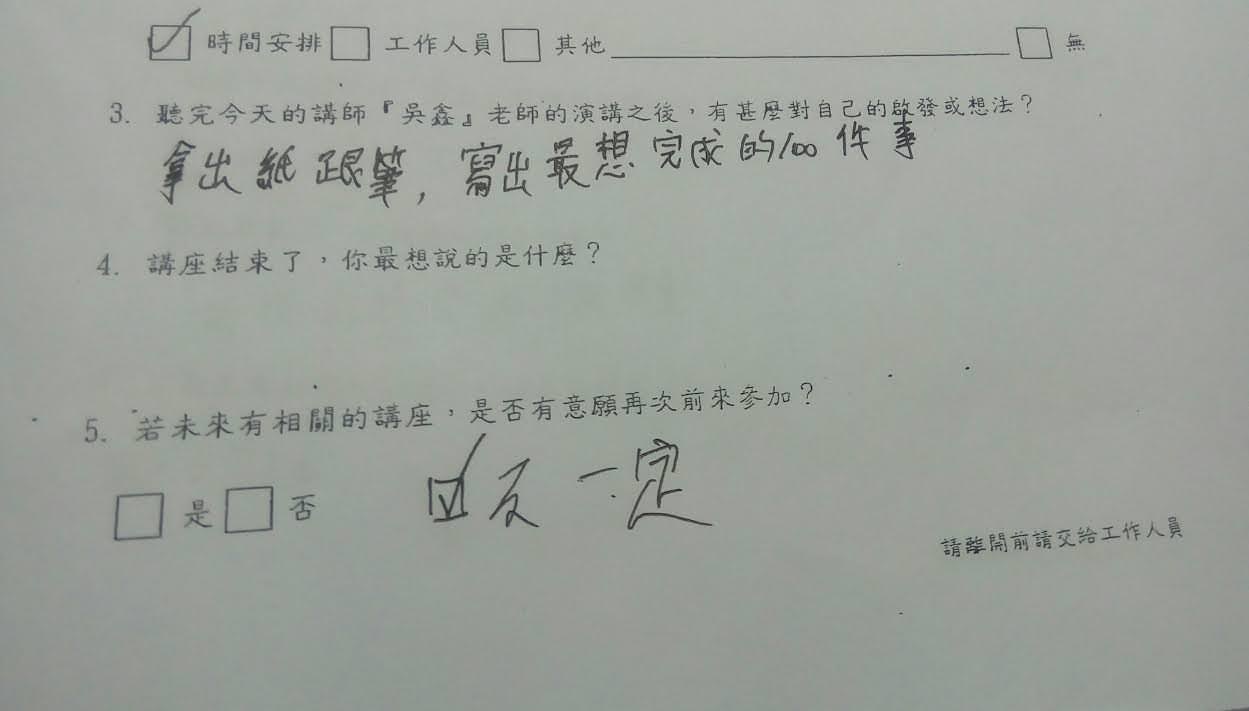 ☑ 時間安排 □ 工作人員 □ 其他 ________ □ 無
3. 聽完今天的講師『吳鑫』老師的演講之後，有甚麼對自己的啟發或想法？
拿出紙跟筆，寫出最想完成的100件事
4. 講座結束了，你最想說的是什麼？
5. 若未來有相關的講座，是否有意願再次前來參加？
□ 是 □ 否 ☑ 不一定
請離開前請交給工作人員